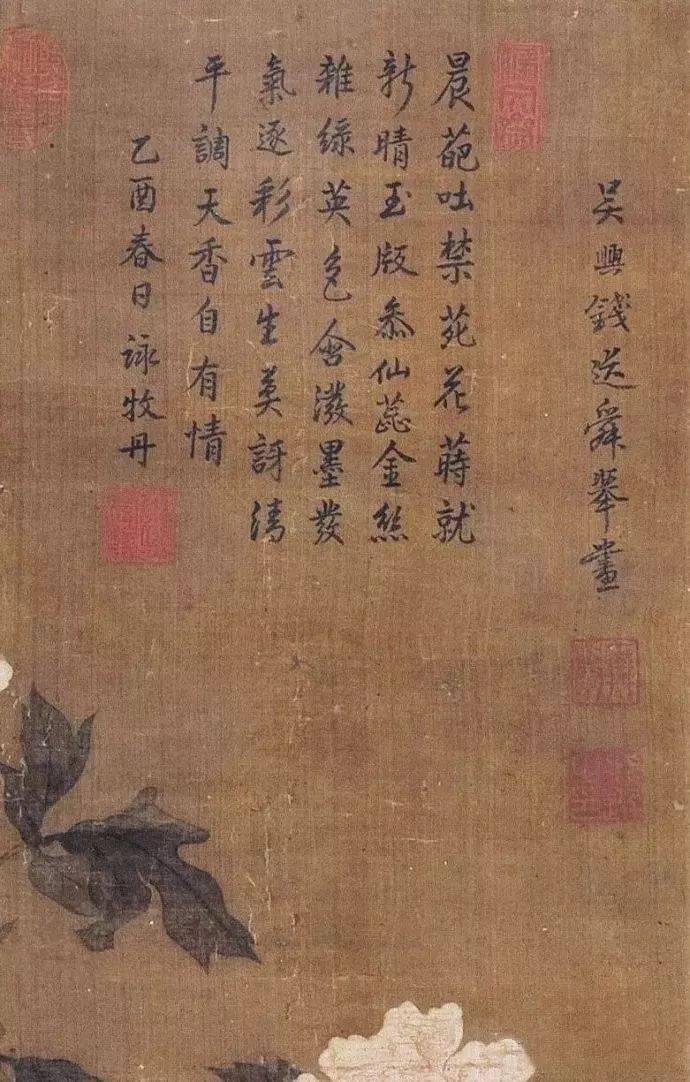 吳興錢选舜舉畫
晨葩吐禁苑花蒔就
新晴玉版叅仙蕊金絲
雜綠英色含潑墨發
氣逐彩雲生莫訝清
平調天香自有情
乙酉春日詠牧丹